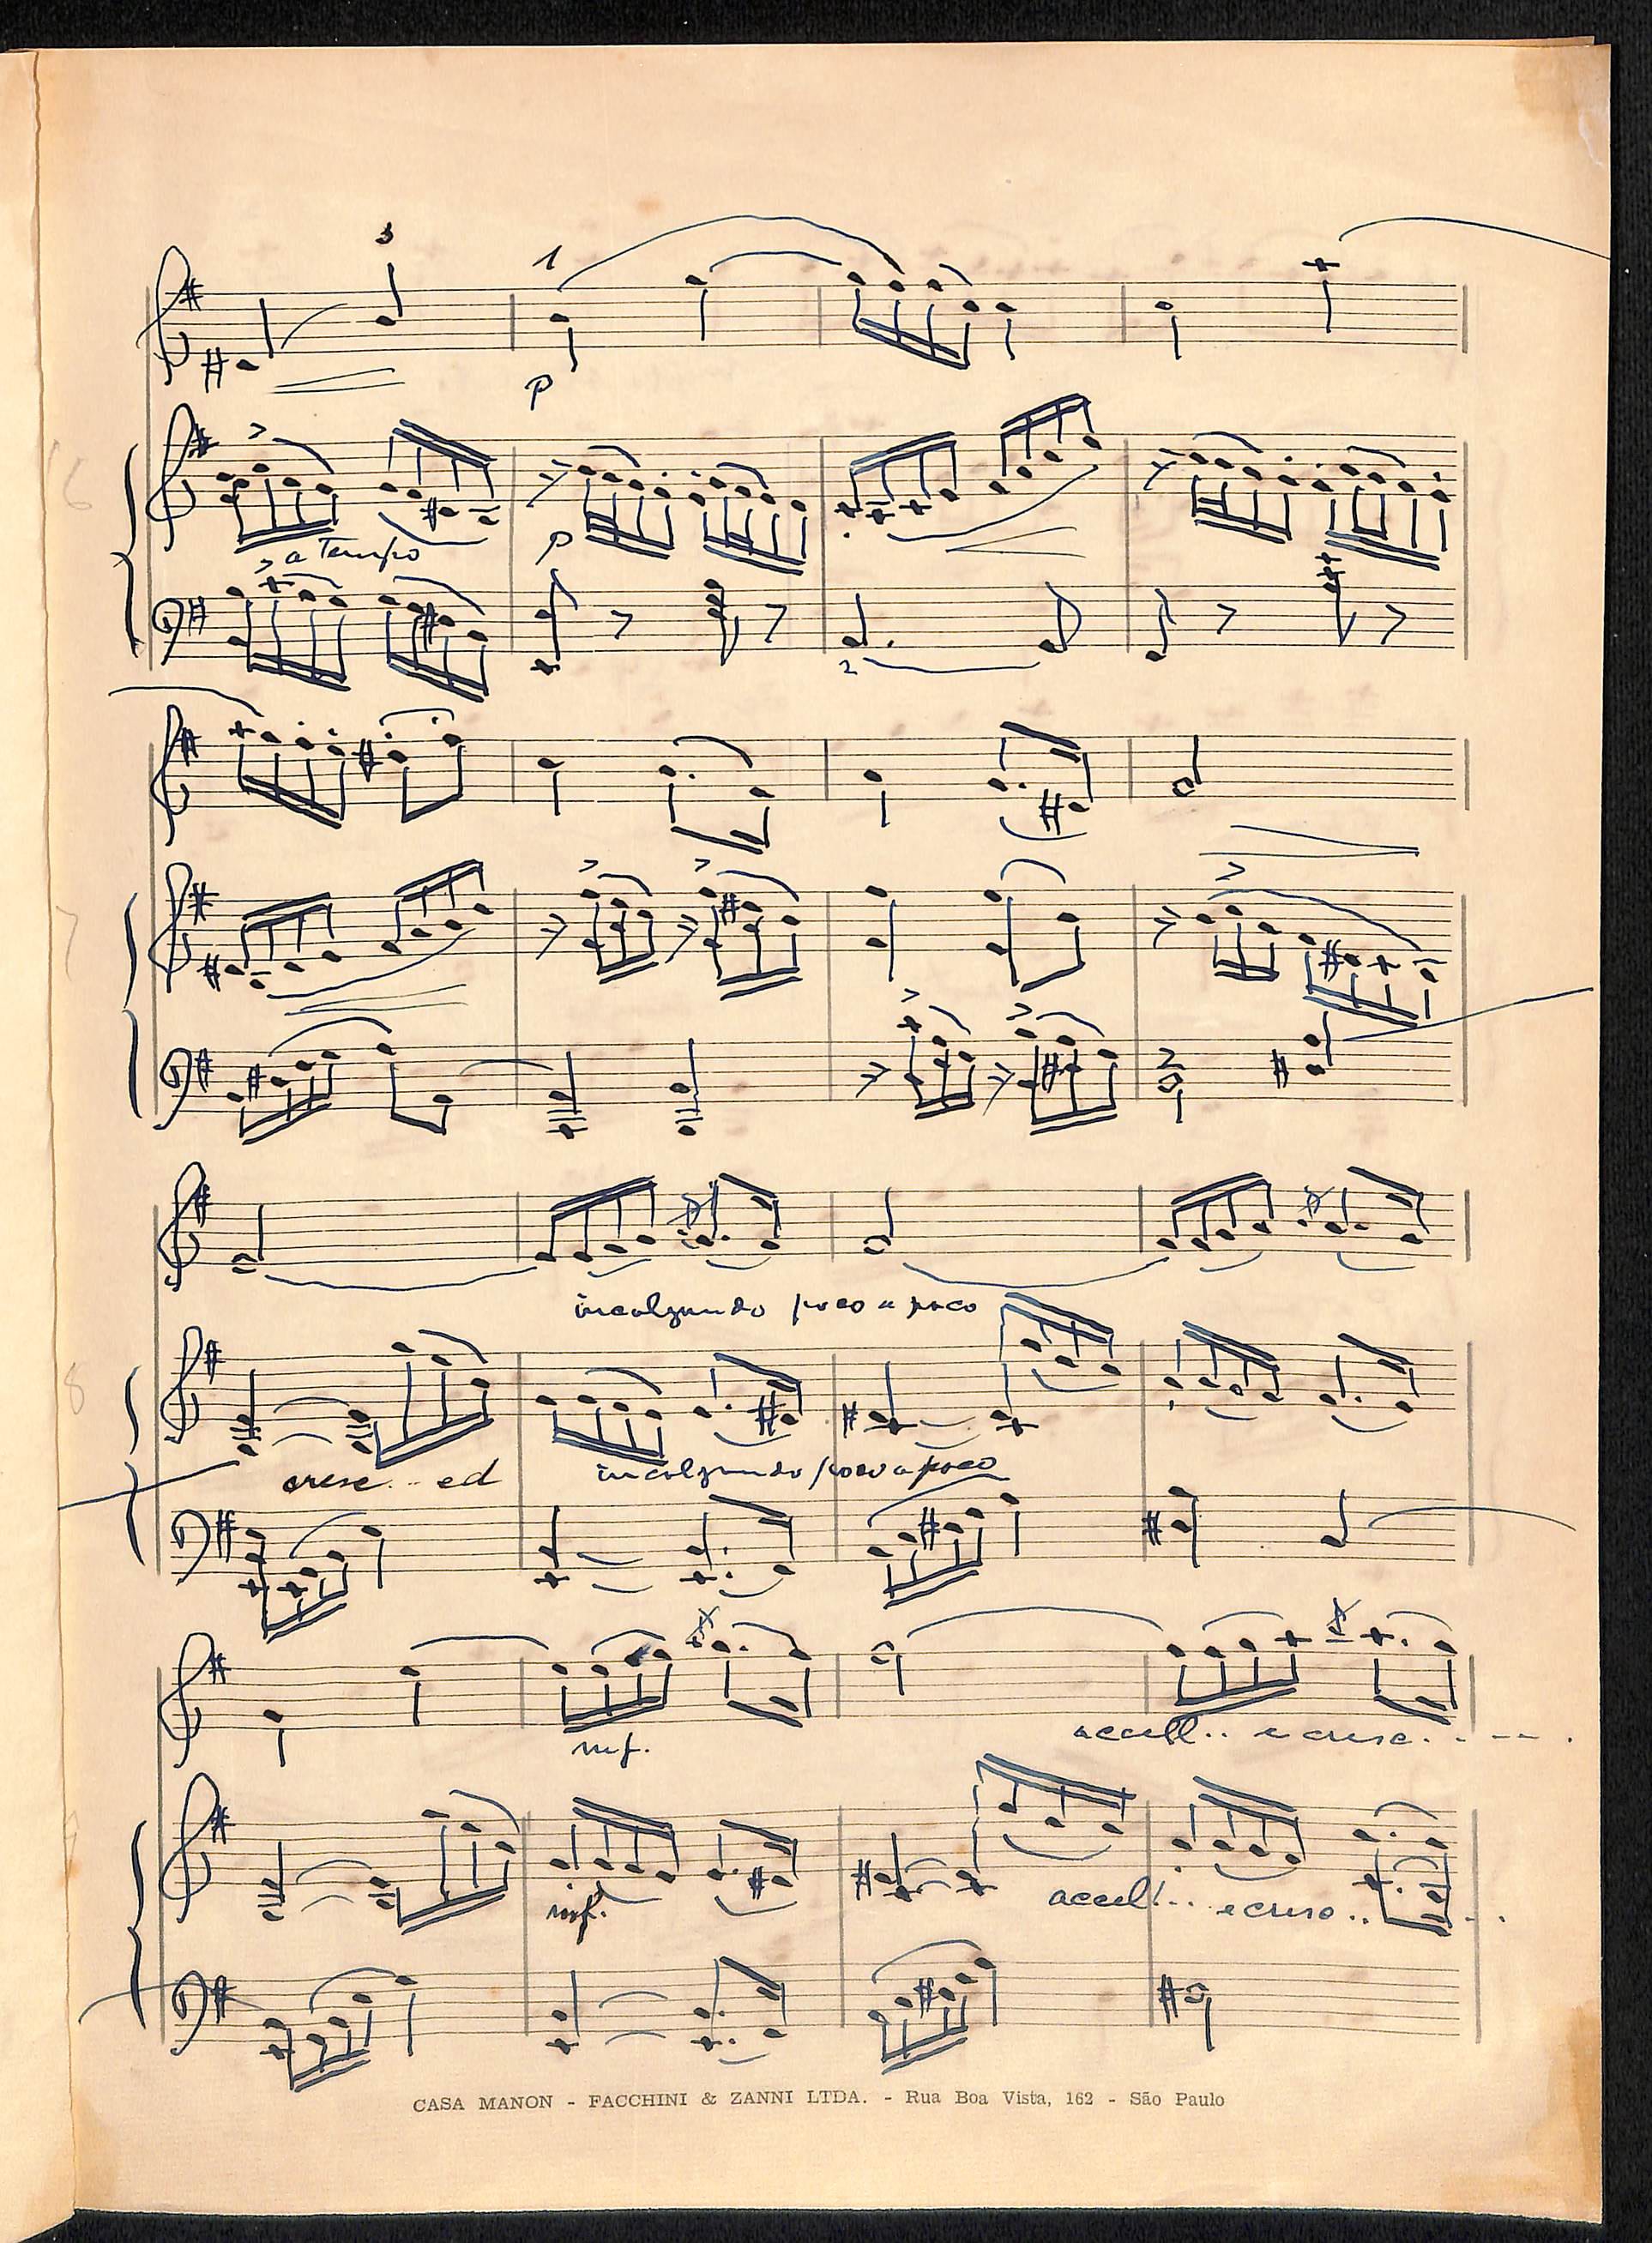 3
1
p
a Tempo
p
2
incalzando poco a poco
cresc... ed
incalzando poco a poco
mf.
accell.. e cresc. . - - .
mf.
accell.. e cresc.. . .
CASA MANON - FACCHINI & ZANNI LTDA. - Rua Boa Vista, 162 - São Paulo